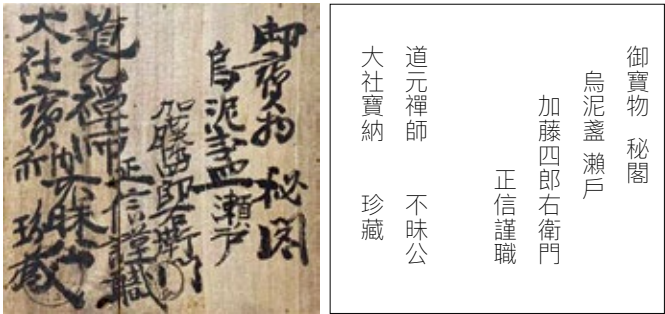 御寶物 秘閣
烏泥盞 瀬戸
加藤四郎右衛門
正信謹職
道元禪師 不昧公
大社寶納 珍藏
御寶物 秘閣
烏泥盞 瀨戶
加藤四郎右衛門
正信謹職
道元禪師 不昧公
大社寶納 珍藏